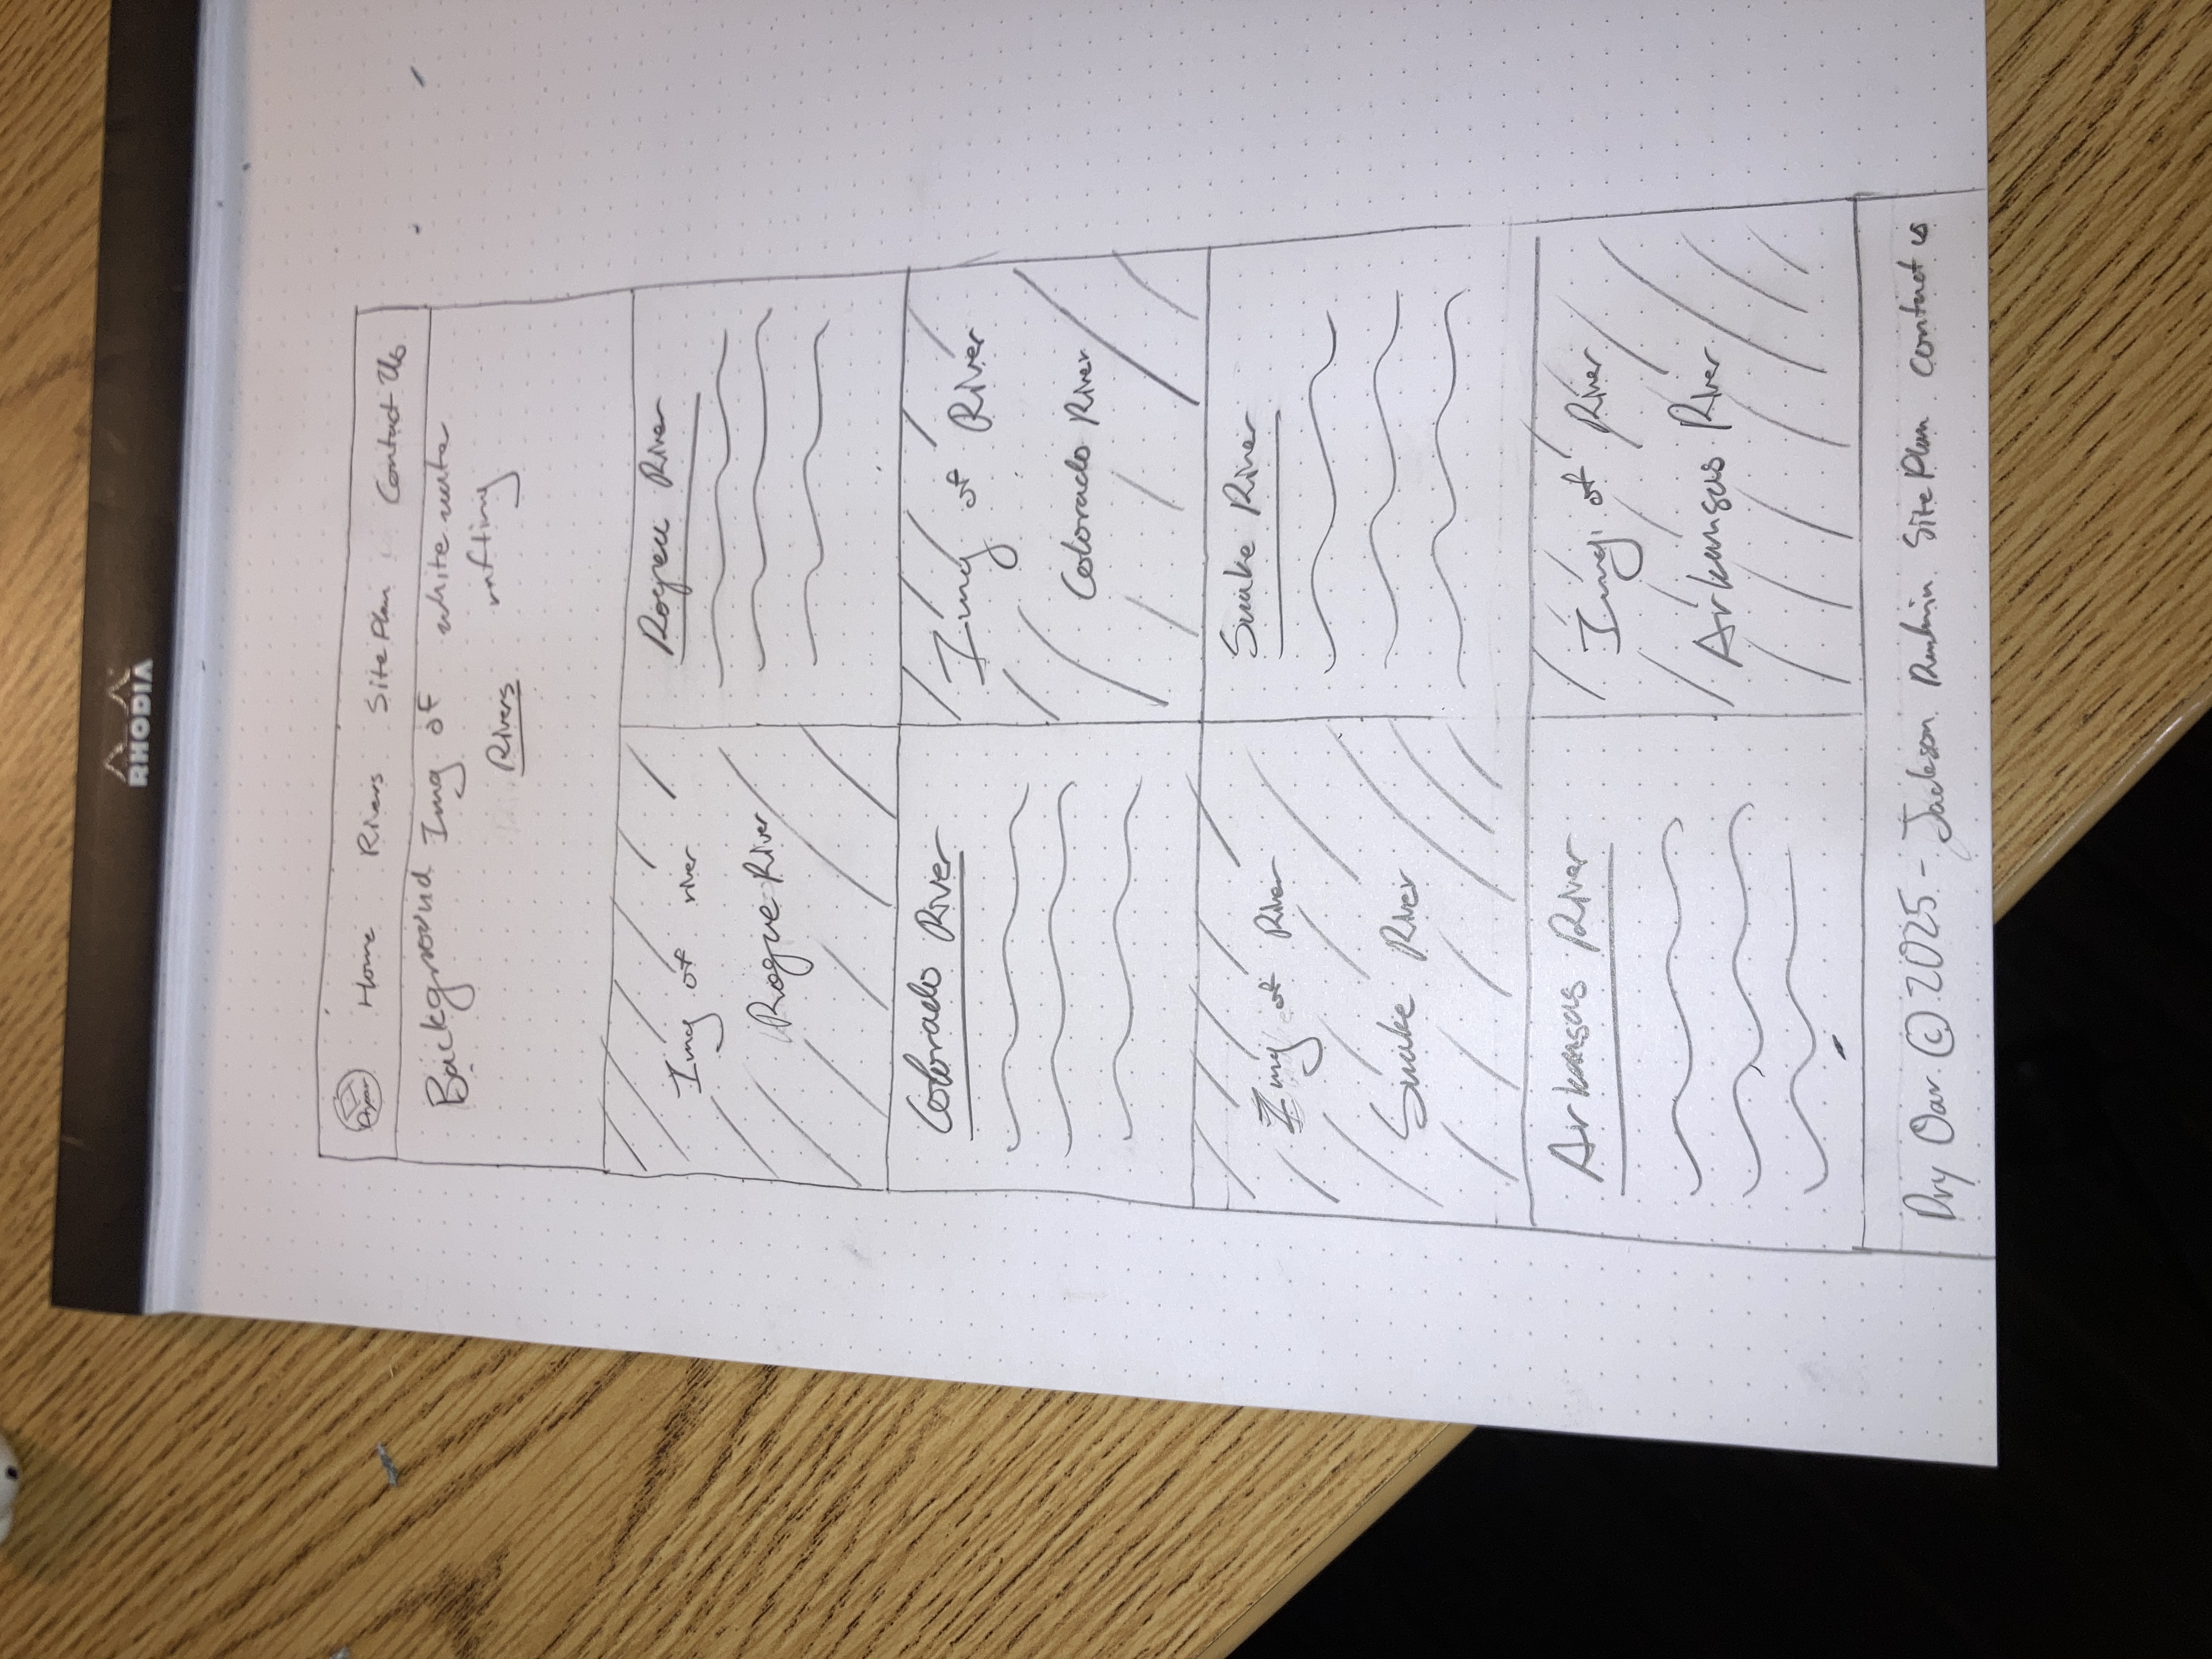 RHODIA
Home Rivers Site Plan Contact Us
Background Img of white water
rafting
Rivers
Img of river
Rogue River
River
Colorado River
Img of River
Colorado River
Img of River
Snake River
Snake River
Arkansas River
Img of River
Arkansas River
Dry Oar © 2025 - Jackson Site Plan Contact us